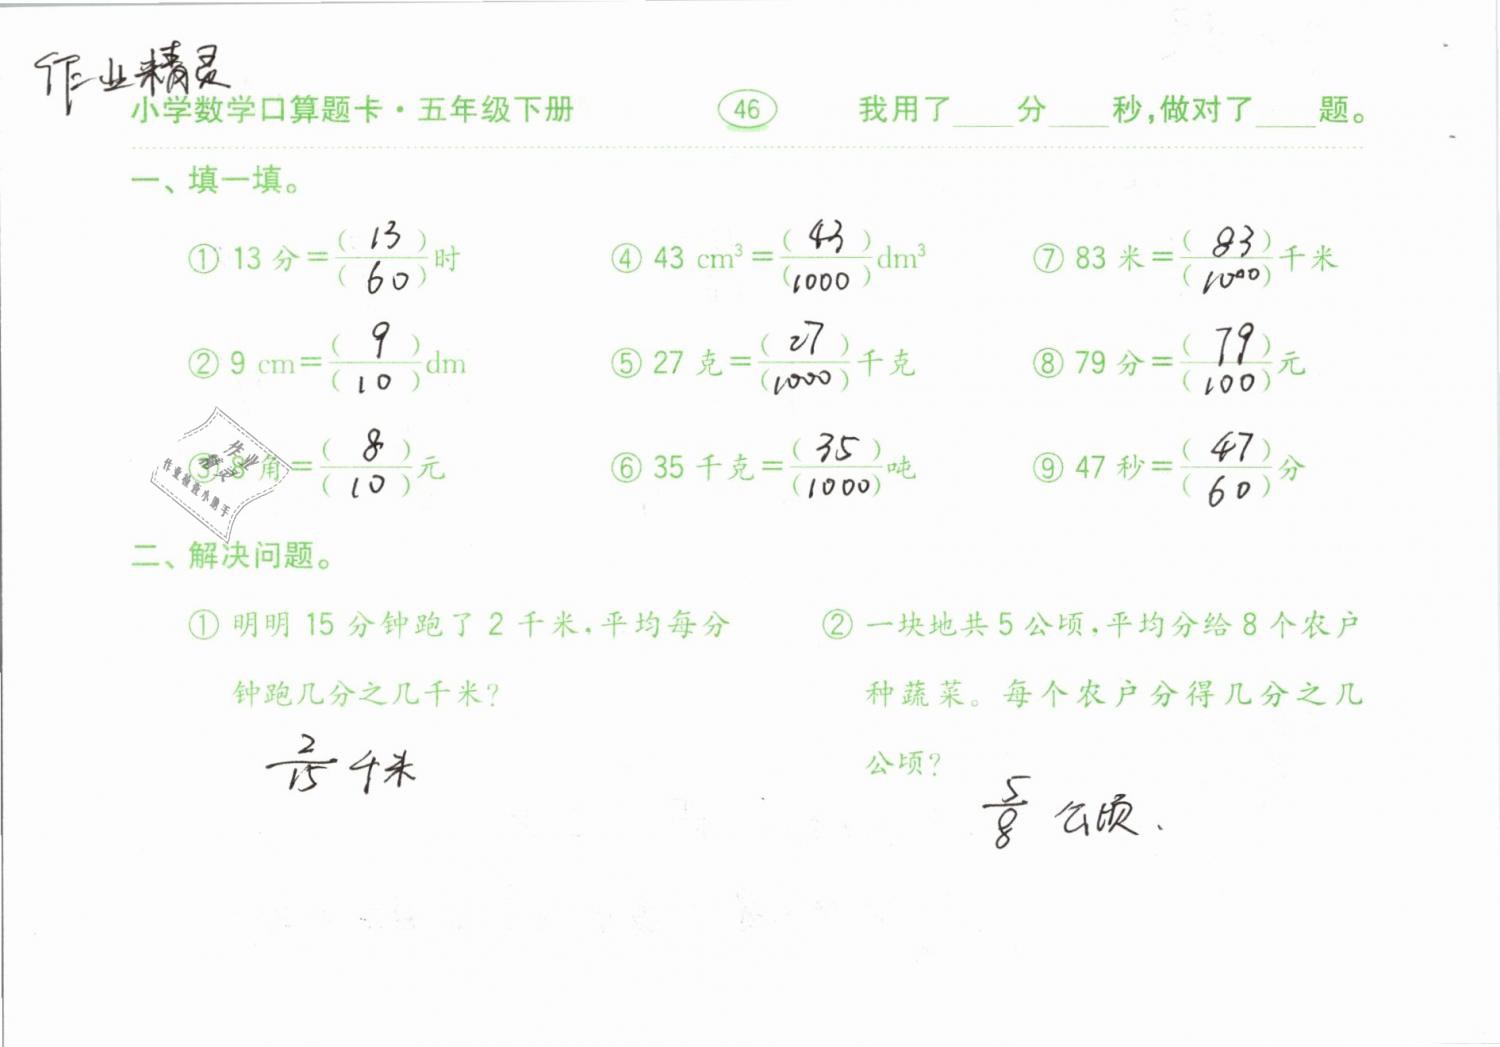 作业精灵
小学数学口算题卡·五年级下册 46 我用了____分____秒,做对了____题。
一、填一填。
① 13 分=(13)/(60)时 ④ 43 cm³=(43)/(1000)dm³ ⑦ 83 米=(83)/(1000)千米
② 9 cm=(9)/(10)dm ⑤ 27 克=(27)/(1000)千克 ⑧ 79 分=(79)/(100)元
③ 8 角=(8)/(10)元 ⑥ 35 千克=(35)/(1000)吨 ⑨ 47 秒=(47)/(60)分
作业
精灵
作业检查小助手
二、解决问题。
① 明明 15 分钟跑了 2 千米,平均每分
钟跑几分之几千米?
2/15 千米
② 一块地共 5 公顷,平均分给 8 个农户
种蔬菜。每个农户分得几分之几
公顷?
5/8 公顷.